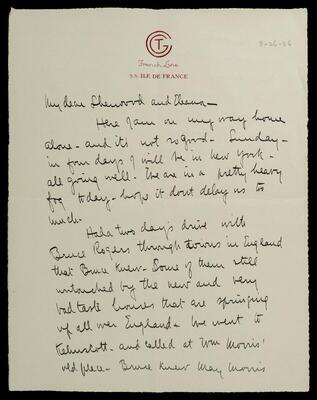 8-26-36
CGT
French Line
S.S. ILE DE FRANCE
My dear Sherwood and Eleanor –
Here I am on my way home
alone – and its not so good – Sunday –
in four days I will be in New York –
all going well – We are in a pretty heavy
fog today – hope it dont delay us to
much.
Had a two day's drive with
Bruce Rogers through towns in England
that Bruce knew – Some of them still
untouched by the new and very
bad taste houses that are springing
up all over England – We went to
Kelmscott – and called at Wm Morris'
old place – Bruce knew May Morris